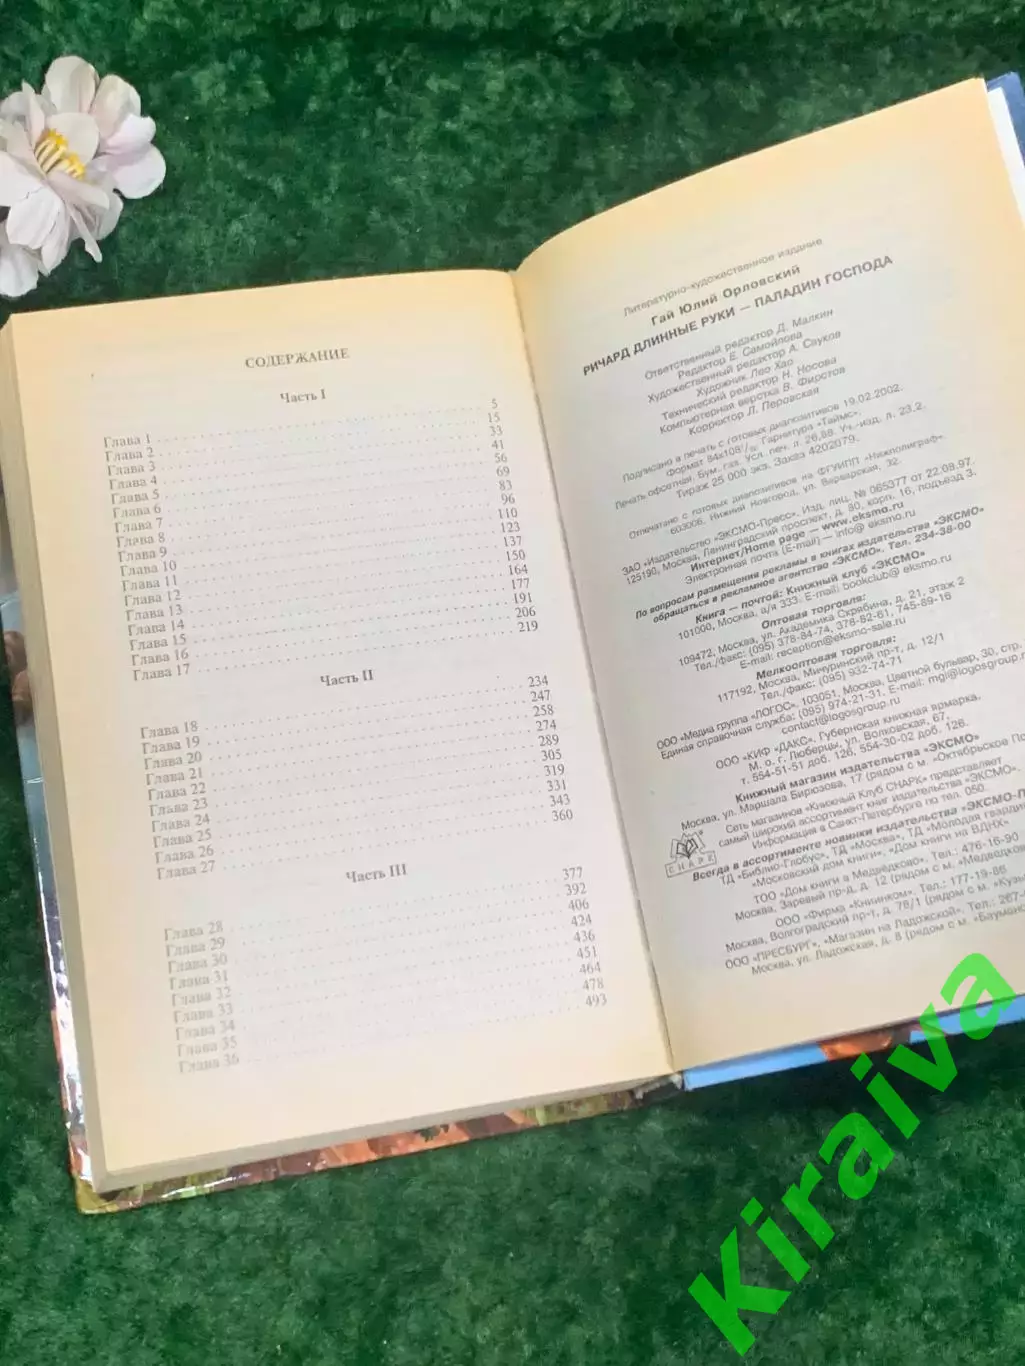 СОДЕРЖАНИЕ
Часть I
Глава 1 5
Глава 2 15
Глава 3 33
Глава 4 41
Глава 5 56
Глава 6 69
Глава 7 83
Глава 8 96
Глава 9 110
Глава 10 123
Глава 11 137
Глава 12 150
Глава 13 164
Глава 14 177
Глава 15 191
Глава 16 206
Глава 17 219
Часть II
Глава 18 234
Глава 19 247
Глава 20 258
Глава 21 274
Глава 22 289
Глава 23 305
Глава 24 319
Глава 25 331
Глава 26 343
Глава 27 360
Часть III
Глава 28 377
Глава 29 392
Глава 30 406
Глава 31 424
Глава 32 436
Глава 33 451
Глава 34 464
Глава 35 478
Глава 36 493
Литературно-художественное издание
Гай Юлий Орловский
РИЧАРД ДЛИННЫЕ РУКИ — ПАЛАДИН ГОСПОДА
Ответственный редактор Д. Малкин
Редактор Е. Самойлова
Художественный редактор А. Сауков
Художник Лео Хао
Технический редактор Н. Носова
Компьютерная верстка В. Фирстов
Корректор Л. Перовская
Подписано в печать с готовых диапозитивов 19.02.2002.
Формат 84x108 1/32. Гарнитура «Таймс».
Печать офсетная. Бум. газ. Усл. печ. л. 26,88. Уч.-изд. л. 23,2.
Тираж 25 000 экз. Заказ 4202079.
Отпечатано с готовых диапозитивов на ФГУИПП «Нижполиграф»
603006, Нижний Новгород, ул. Варварская, 32.
ЗАО «Издательство «ЭКСМО-Пресс». Изд. лиц. № 065377 от 22.08.97.
125190, Москва, Ленинградский проспект, д. 80, корп. 16, подъезд 3.
Интернет/Home page — www.eksmo.ru
Электронная почта (E-mail) — info@ eksmo.ru
По вопросам размещения рекламы в книгах издательства «ЭКСМО»
обращаться в рекламное агентство «ЭКСМО». Тел. 234-38-00
Книга — почтой: Книжный клуб «ЭКСМО»
101000, Москва, а/я 333. E-mail: bookclub@ eksmo.ru
Оптовая торговля:
109472, Москва, ул. Академика Скрябина, д. 21, этаж 2
Тел./факс: (095) 378-84-74, 378-82-61, 745-89-16
E-mail: reception@eksmo-sale.ru
Мелкооптовая торговля:
117192, Москва, Мичуринский пр-т, д. 12/1
Тел./факс: (095) 932-74-71
ООО «Медиа группа «ЛОГОС». 103051, Москва, Цветной бульвар, 30, стр.
Единая справочная служба: (095) 974-21-31. E-mail: mgl@logosgroup.ru
contact@logosgroup.ru
ООО «КИФ «ДАКС». Губернская книжная ярмарка.
М. о. г. Люберцы, ул. Волковская, 67.
т. 554-51-51 доб. 126, 554-30-02 доб. 126.
Книжный магазин издательства «ЭКСМО»
Москва, ул. Маршала Бирюзова, 17 (рядом с м. «Октябрьское По
Сеть магазинов «Книжный Клуб СНАРК» представляет
самый широкий ассортимент книг издательства «ЭКСМО».
Информация в Санкт-Петербурге по тел. 050.
СНАРК
Всегда в ассортименте новинки издательства «ЭКСМО-П
ТД «Библио-Глобус», ТД «Москва», ТД «Молодая гварди
«Московский дом книги», «Дом книги на ВДНХ»
ТОО «Дом книги в Медведково». Тел.: 476-16-90
Москва, Заревый пр-д, д. 12 (рядом с м. «Медведков
ООО «Фирма «Книинком». Тел.: 177-19-86
Москва, Волгоградский пр-т, д. 78/1 (рядом с м. «Кузь
ООО «ПРЕСБУРГ», «Магазин на Ладожской». Тел.: 267-
Москва, ул. Ладожская, д. 8 (рядом с м. «Бауман
Kiraiva